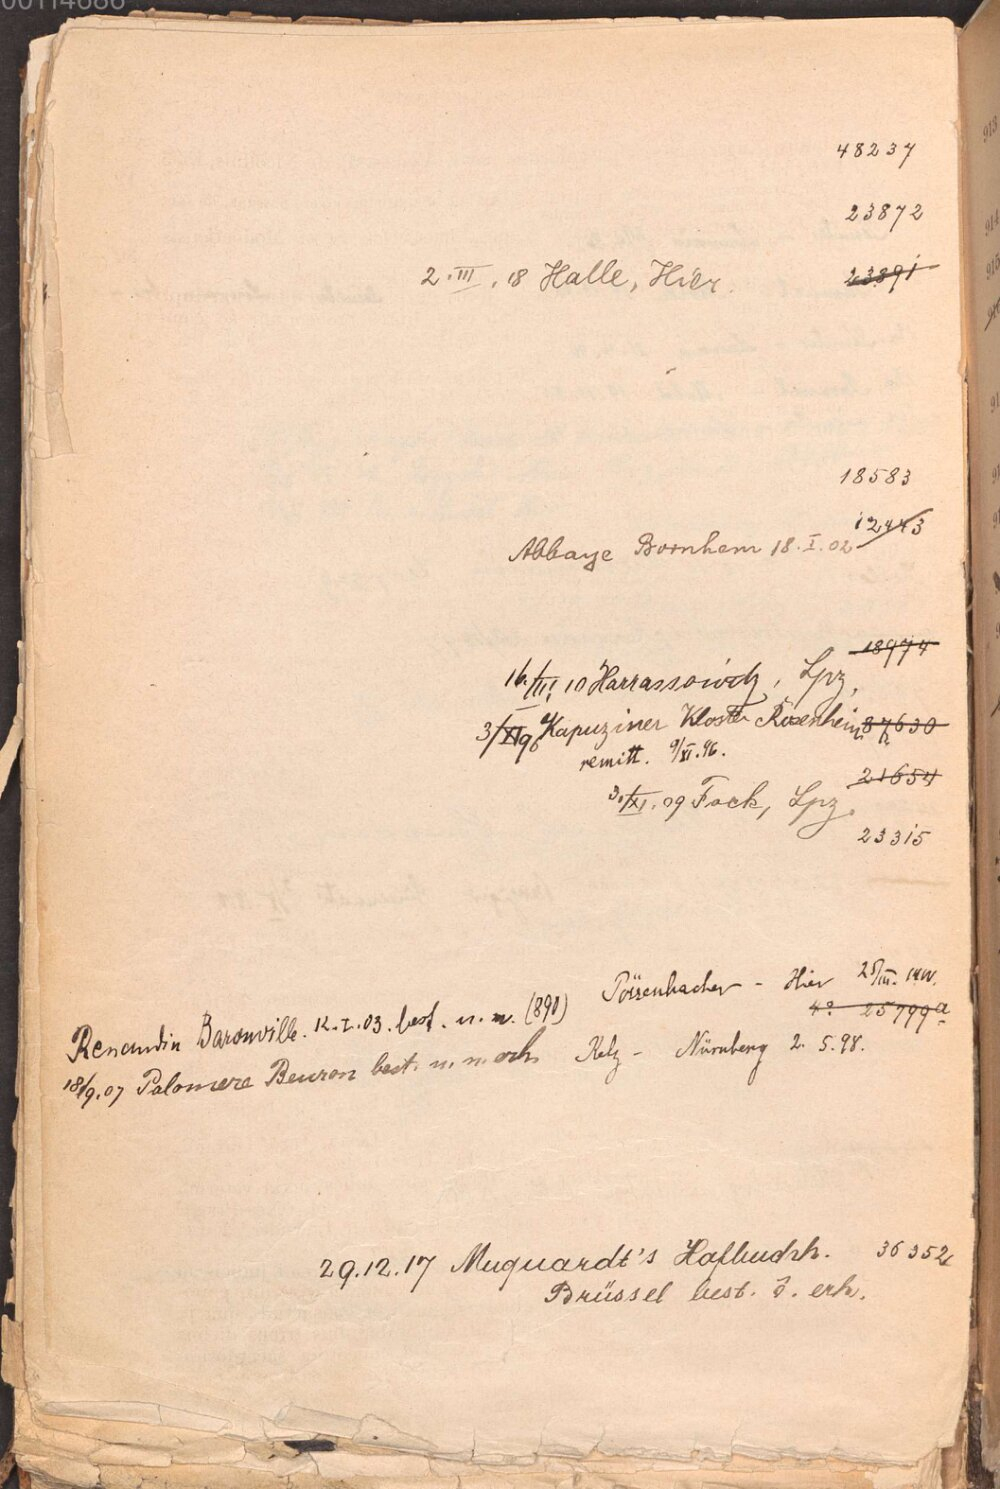 00114686
48237
23872
2.III.18 Halle, Hier. 23891
18583
12443
Abbaye Bornhem 18.I.02
18974
16./III. 10 Harrassowitz, Lpz,
3/XI 96 Kapuziner Kloster Rosenheim 87630
remitt. 9/XI.96.
21654
30/XI.09 Fock, Lpz.
23315
Pössenbacher - Hier 25/III.
4° 25799a
Renaudin Baronville. 12.I.03. best. u. n. (890)
18/9.07 Palomera Beuron best. u. n. erh. Kelz - Nürnberg 2. 5.98.
29.12.17 Muquardt's Hofbuchh. 36352
Brüssel best. erh.